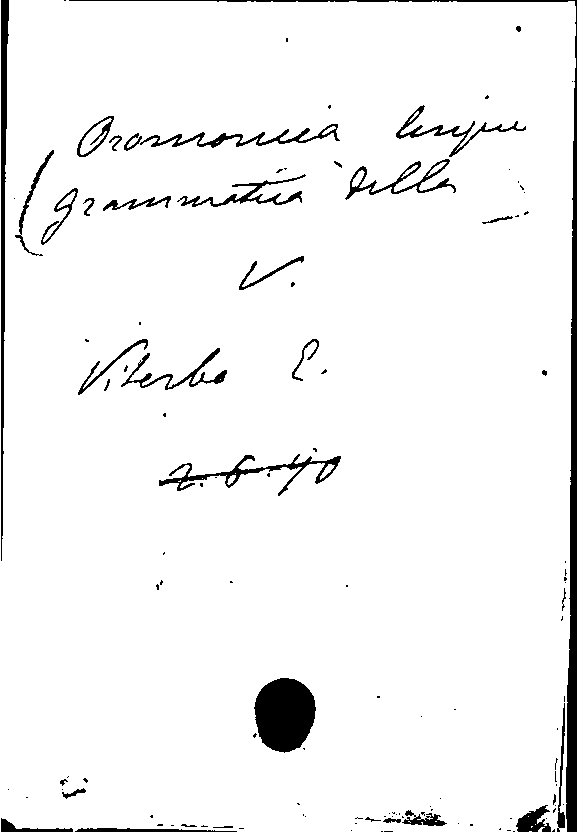 Oromonica lingua
(grammatica della
V.
Viterbo E.
2.6.40